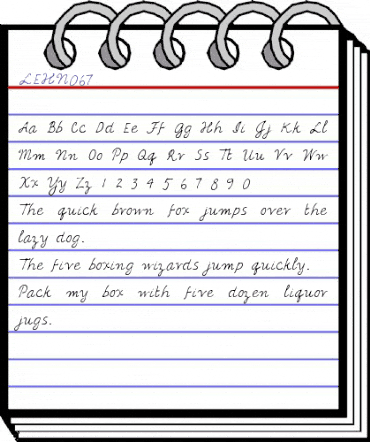 LEHN067
Aa Bb Cc Dd Ee Ff Gg Hh Ii Jj Kk Ll
Mm Nn Oo Pp Qq Rr Ss Tt Uu Vv Ww
Xx Yy Zz 1 2 3 4 5 6 7 8 9 0
The quick brown fox jumps over the
lazy dog.
The five boxing wizards jump quickly.
Pack my box with five dozen liquor
jugs.